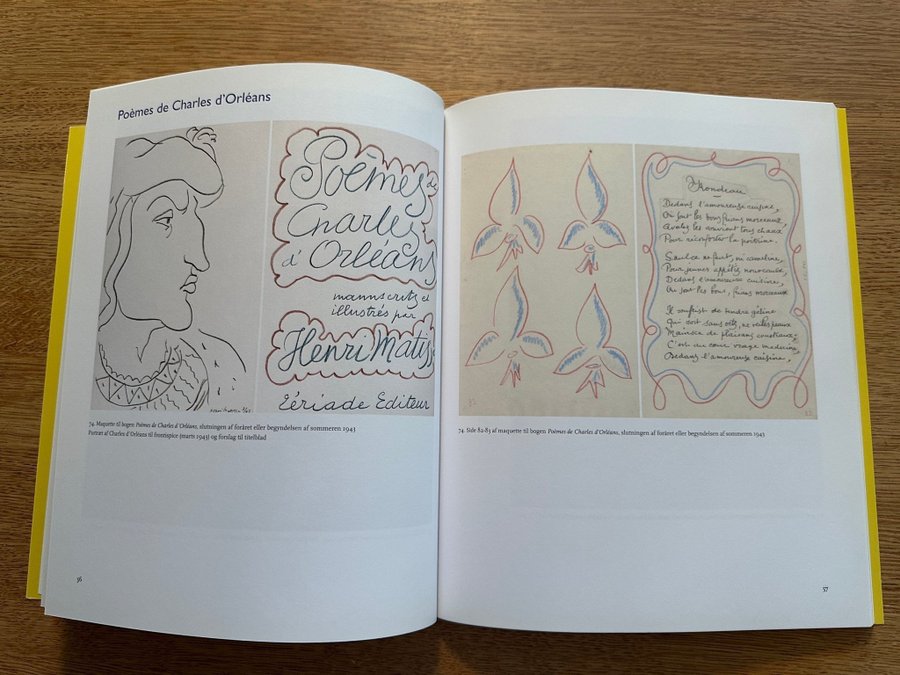 Poèmes de Charles d'Orléans
Poèmes de
Charles
d'Orléans
manuscrits et
illustrés par
Henri Matiss
Tériade Editeur
74. Maquette til bogen Poèmes de Charles d'Orléans, slutningen af foråret eller begyndelsen af sommeren 1943
Portræt af Charles d'Orléans til frontispice (marts 1943) og forslag til titelblad
56
Rondeau
Dedans l'amoureuse cuisine,
Où sont les bons frians morceaux,
Avaler les convient tous chaux
Pour reconforter la poitrine.
Saulce ne fault, ni cameline,
Pour jeunes appétiz nouveaux,
Dedans l'amoureuse cuisine,
Où sont les bons, frians morceaux
Il souffist de tendre geline
Qui soit sans oz, ne vielles peaux
Mainssée de plaisans cousteaux;
C'est au cueur vraye medecine
Dedans l'amoureuse cuisine,
74. Side 82-83 af maquette til bogen Poèmes de Charles d'Orléans, slutningen af foråret eller begyndelsen af sommeren 1943
57